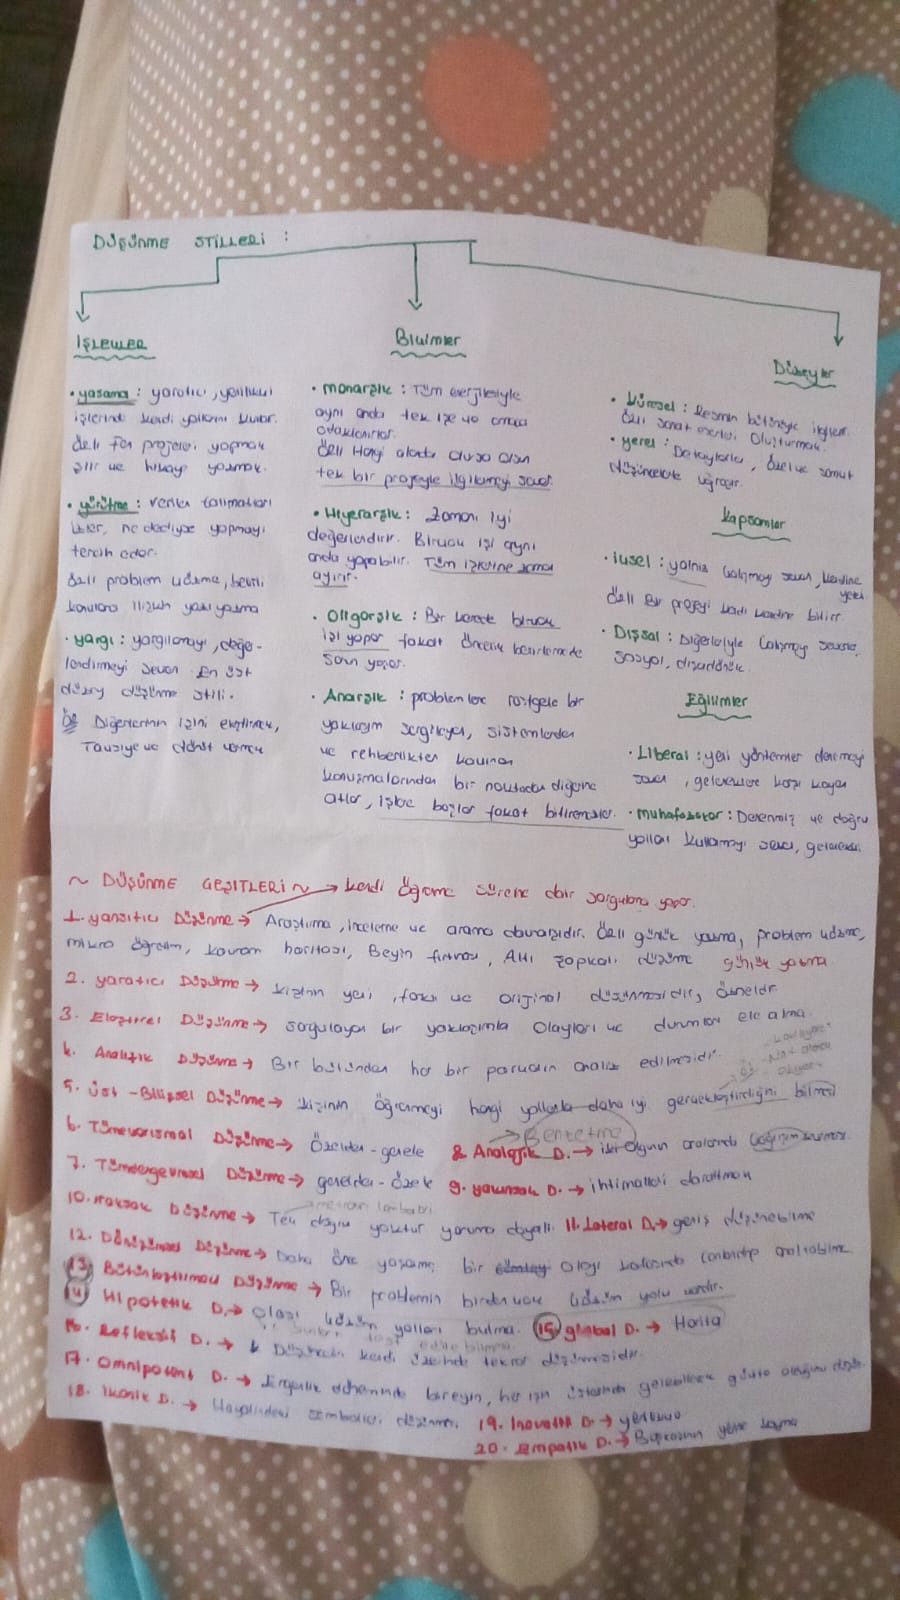 DÜŞÜNME STİLLERİ :
İŞLEVLER
• yasama : yaratıcı, yenilikçi
işlerinde kendi yollarını kullanır.
özell fen projesi yapmak
şiir ve hikaye yazmak.
• yürütme : verilen talimatları
izler, ne dediyse yapmayı
tercih eder.
özell problem çözme, belirli
konulara ilişkin yazı yazma
• yargı : yargılamayı, değer-
lendirmeyi seven. En üst
düzey düşünme stili.
ÖR Diğerlerinin işini eleştirmek,
Tavsiye ve dönüt vermek
Biçimler
• monarşik : Tüm enerjileriyle
aynı anda tek işe ve amaca
odaklanırlar.
özell Hangi alanda olursa olsun
tek bir projeyle ilgilenmeyi sever.
• Hiyerarşik : Zamanı iyi
değerlendirir. Birçok işi aynı
anda yapabilir. Tüm işlerine zaman
ayırır.
• Oligarşik : Bir kerede birçok
işi yapar fakat öncelik belirlemede
sorun yaşar.
• Anarşik : problemlere rastgele bir
yaklaşım sergileyen, sistemlerden
ve rehberlikten kaçınan
konuşmalarından bir noktadan diğerine
atlar, işlere başlar fakat bitiremezler.
Düzeyler
• küresel : Resmin bütünüyle ilgilenir.
özell sanat eserleri oluşturmak.
• yerel : Detaylarla, özel ve somut
düşüncelerle uğraşır.
Kapsamlar
• içsel : yalnız çalışmayı sever, kendine
yeter
özell Bir projeyi kendi kendine bitirir.
• Dışsal : Diğerleriyle çalışmayı severler,
sosyal, dışadönük.
Eğilimler
• Liberal : yeni yöntemler denemeyi
sever, geleneklere karşı koyar
• muhafazakar : Denenmiş ve doğru
yolları kullanmayı sever, geleneksel
~ DÜŞÜNME ÇEŞİTLERİ ~ → kendi öğrenme sürecine dair sorgulama yapar.
1. yansıtıcı Düşünme → Araştırma, inceleme ve arama davranışıdır. özell günlük yazma, problem çözme,
mikro öğretim, kavram haritası, Beyin fırtınası, Altı şapkalı düşünme günlük yazma
2. yaratıcı Düşünme → kişinin yeni, farklı ve orijinal düşünmesidir,
3. Eleştirel Düşünme → sorgulayan bir yaklaşımla olayları ve durumları ele alma.
4. Analitik Düşünme → Bir bütünden her bir parçanın analiz edilmesidir.
5. Üst-Bilişsel Düşünme → kişinin öğrenmeyi hangi yollarla daha iyi gerçekleştirdiğini bilmesi
Not alarak
6. Tümevarımsal Düşünme → Özelden - genele 8. Analojik D. → iki olgunun aralarında
Benzetme
7. Tümdengelimsel Düşünme → genelden - özele 9. yakınsak D. → ihtimalleri daraltmak
10. Iraksak Düşünme → Tek doğru yoktur yoruma dayalı 11. Lateral D. → geniş düşünebilme
12. Dönüşümsel Düşünme → Daha önce yaşamış bir olayı kafasında canlandırıp anlatabilme
13. Bütünleştirmeci Düşünme → Bir problemin birden çok çözüm yolu vardır.
14. Hipotetik D. → olası çözüm yolları bulma. 15. global D. → Harita
16. Refleksif D. → Düşüncenin kendi üzerinde tekrar düşünmesidir.
17. Omnipotent D. → Ergenlik döneminde bireyin, her işin üstesinden gelebilecek güçte olduğunu düşün.
18. İkonik D. → Hayalindeki sembolleri düşünme. 19. İnovatik D. → yenilikçi
20. Empatik D. → Başkasının yerine koyma